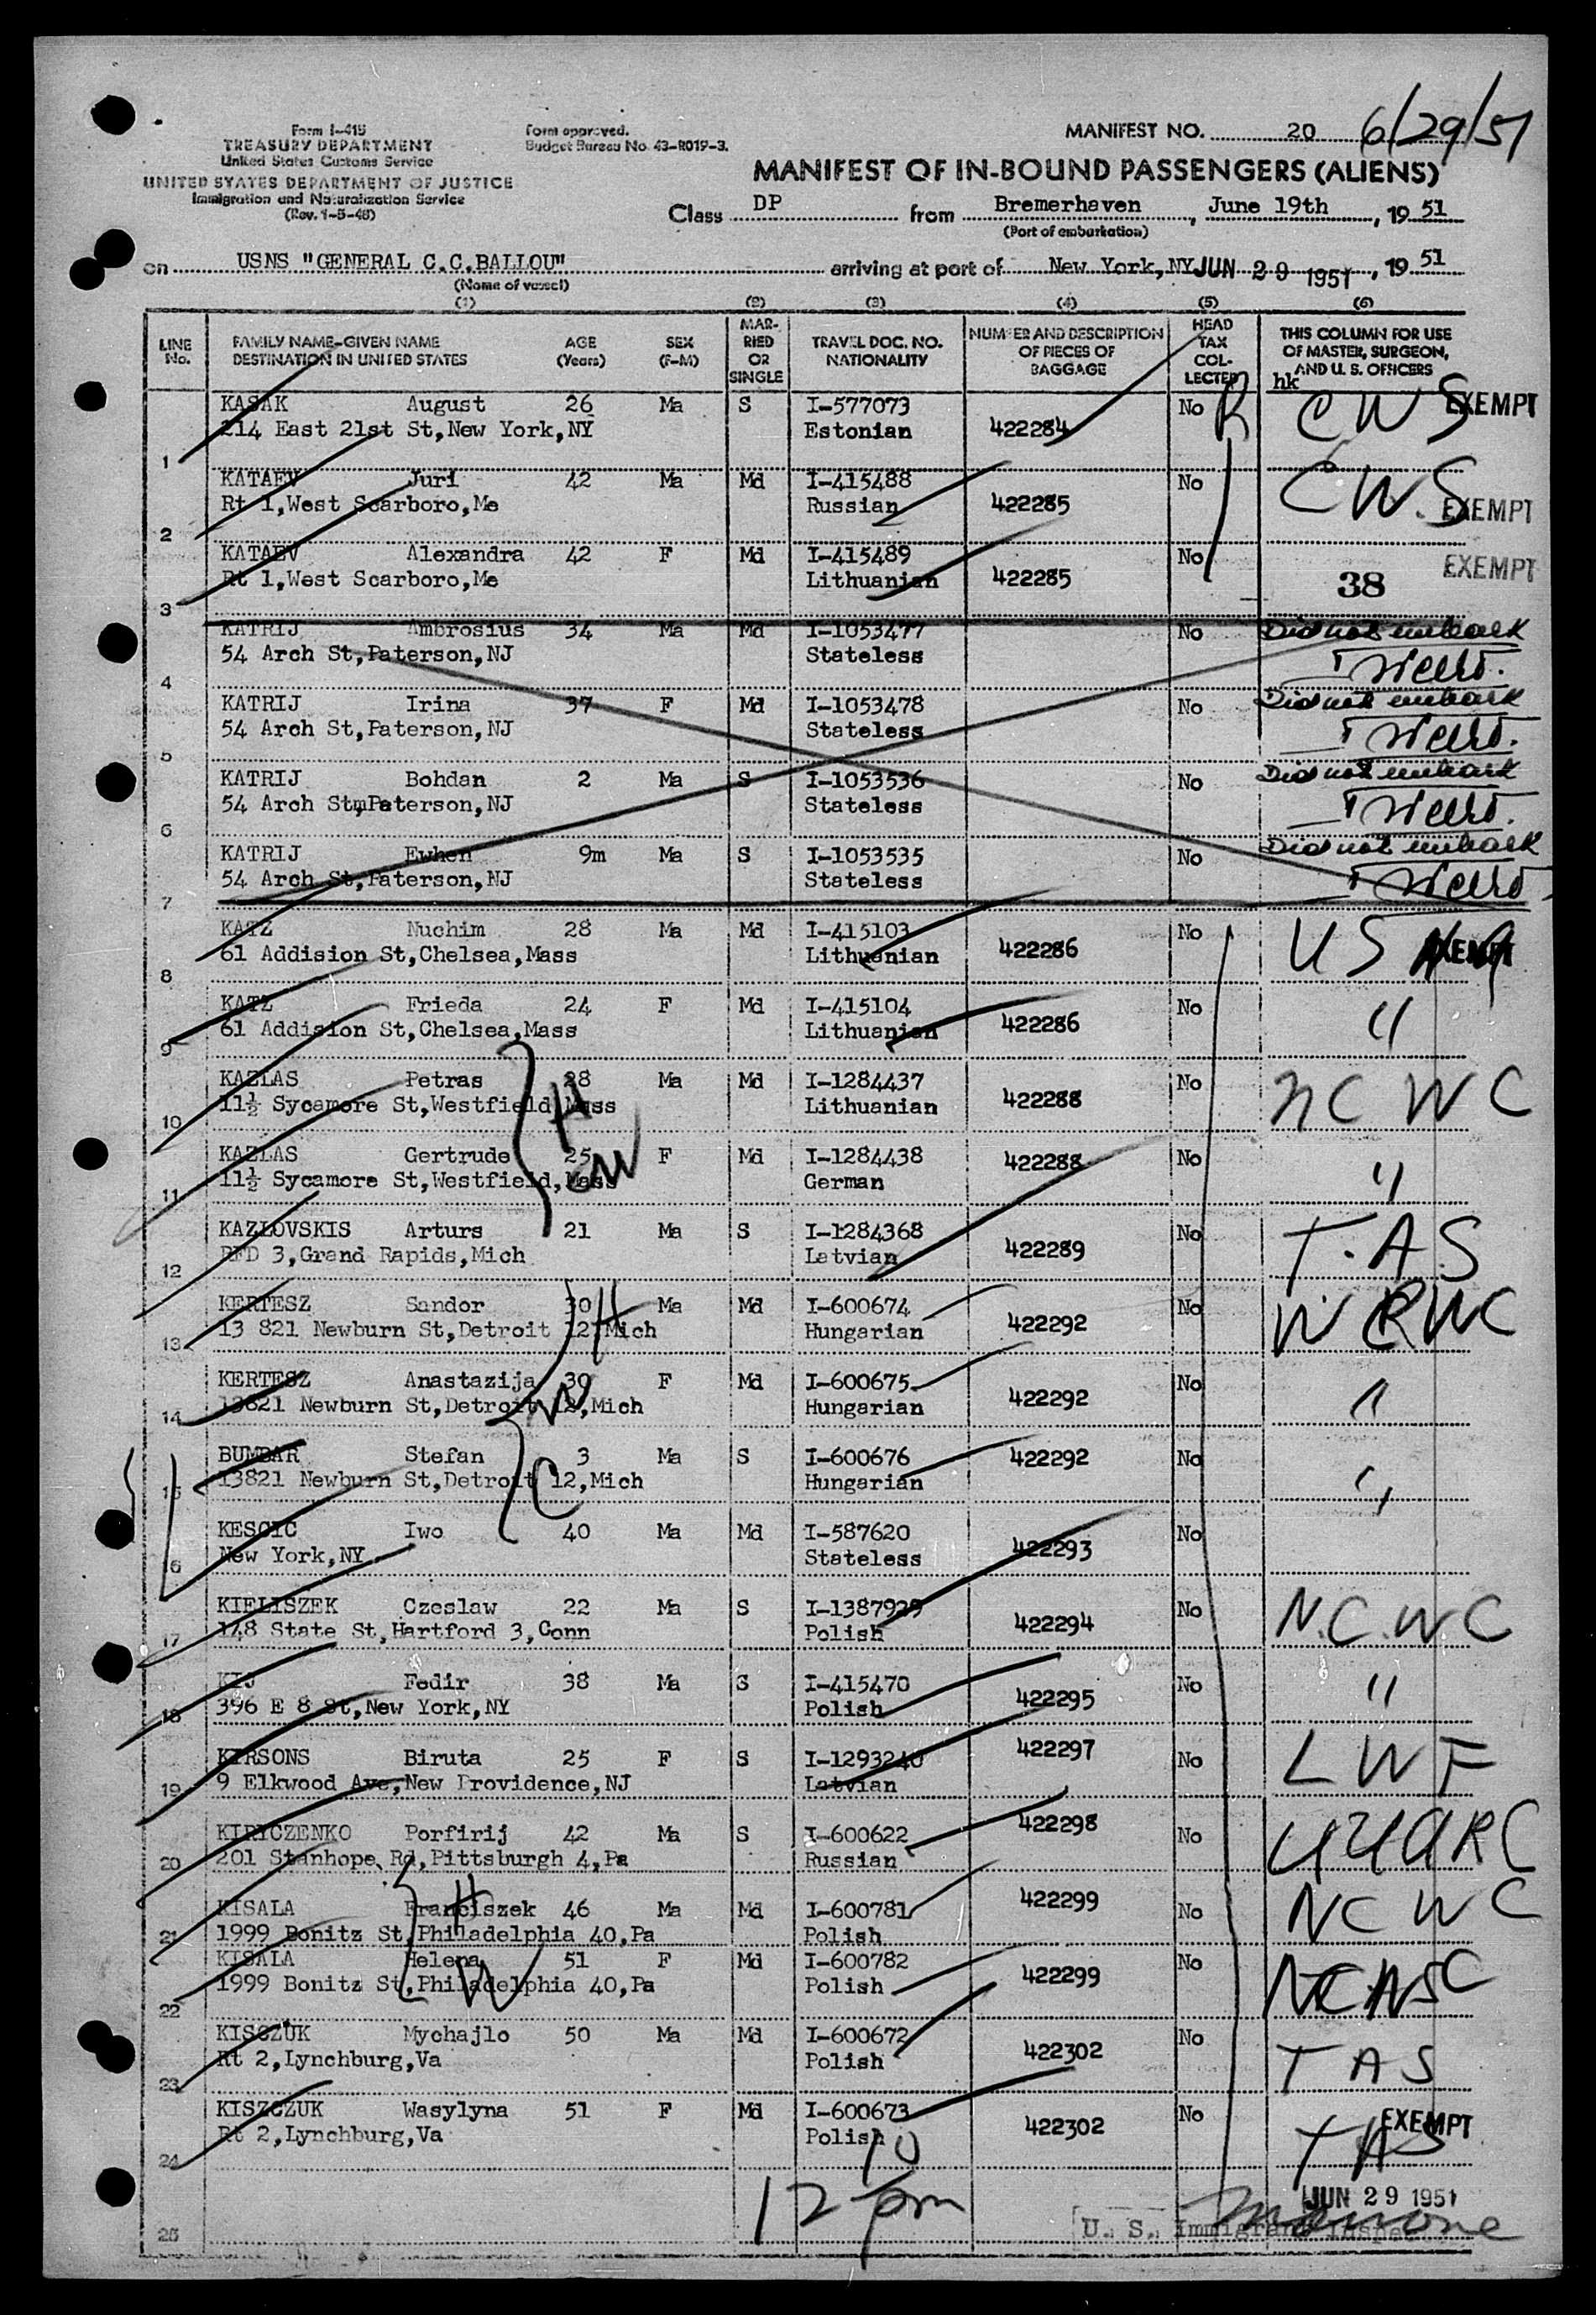 Form I-415
TREASURY DEPARTMENT
United States Customs Service
UNITED STATES DEPARTMENT OF JUSTICE
Immigration and Naturalization Service
(Rev. 1-5-48)
Form approved.
Budget Bureau No. 43-R019-3.
MANIFEST NO. 20 6/29/51
MANIFEST OF IN-BOUND PASSENGERS (ALIENS)
Class DP from Bremerhaven, June 19th, 19 51
(Port of embarkation)
on USNS "GENERAL C.C.BALLOU" arriving at port of New York,NY JUN 29 1951, 19 51
(Name of vessel)
(1) (2) (3) (4) (5) (6)
LINE No. FAMILY NAME-GIVEN NAME DESTINATION IN UNITED STATES AGE (Years) SEX (F-M) MARRIED OR SINGLE TRAVEL DOC. NO. NATIONALITY NUMBER AND DESCRIPTION OF PIECES OF BAGGAGE HEAD TAX COLLECTED THIS COLUMN FOR USE OF MASTER, SURGEON, AND U. S. OFFICERS
hk
KASAK August 26 Ma S I-577073 No R CWS EXEMPT
214 East 21st St,New York,NY Estonian 422284
1
KATAEV Juri 42 Ma Md I-415488 No CWS
Rt 1,West Scarboro,Me Russian 422285 EXEMPT
2
KATAEV Alexandra 42 F Md I-415489 No EXEMPT
Rt 1,West Scarboro,Me Lithuanian 422285 38
3
KATRIJ Ambrosius 34 Ma Md I-1053477 No Did not embark
54 Arch St,Paterson,NJ Stateless
4
KATRIJ Irina 37 F Md I-1053478 No Did not embark
54 Arch St,Paterson,NJ Stateless
5
KATRIJ Bohdan 2 Ma S I-1053536 No Did not embark
54 Arch StmPaterson,NJ Stateless
6
KATRIJ Ewhen 9m Ma S I-1053535 No Did not embark
54 Arch St,Paterson,NJ Stateless
7
KATZ Nuchim 28 Ma Md I-415103 No US NA EXEMPT
61 Addision St,Chelsea,Mass Lithuanian 422286
8
KATZ Frieda 24 F Md I-415104 No "
61 Addision St,Chelsea,Mass Lithuanian 422286
9
KAZLAS Petras 28 Ma Md I-1284437 No NCWC
11½ Sycamore St,Westfield,Mass Lithuanian 422288
H
10
KAZLAS Gertrude 25 F Md I-1284438 422288 No "
11½ Sycamore St,Westfield,Mass German
11
KAZLOVSKIS Arturs 21 Ma S I-1284368 No T.A.S
RFD 3,Grand Rapids,Mich Latvian 422289
12
KERTESZ Sandor 30 H Ma Md I-600674 No WRWC
13 821 Newburn St,Detroit 12,Mich Hungarian 422292
13
KERTESZ Anastazija 30 F Md I-600675 No "
13821 Newburn St,Detroit 12,Mich Hungarian 422292
W
14
BUMBAR Stefan 3 Ma S I-600676 422292 No "
13821 Newburn St,Detroit 12,Mich Hungarian
C
15
KESCIC Iwo 40 Ma Md I-587620 No
New York,NY Stateless 422293
16
KIELISZEK Czeslaw 22 Ma S I-1387929 No N.C.W.C
148 State St,Hartford 3,Conn Polish 422294
17
KIJ Fedir 38 Ma S I-415470 No "
396 E 8 St,New York,NY Polish 422295
18
KIRSONS Biruta 25 F S I-1293240 422297 No LWF
9 Elkwood Ave,New Providence,NJ Latvian
19
KIRYCZENKO Porfirij 42 Ma S I-600622 422298 No UUARC
201 Stanhope Rd,Pittsburgh 4,Pa Russian
20
KISALA Franciszek 46 Ma Md I-600781 422299 No NCWC
H
1999 Bonitz St,Philadelphia 40,Pa Polish
21
KISALA Helena 51 F Md I-600782 No
1999 Bonitz St,Philadelphia 40,Pa Polish 422299
W
22
KISCZUK Mychajlo 50 Ma Md I-600672 No TAS
Rt 2,Lynchburg,Va Polish 422302
23
KISZCZUK Wasylyna 51 F Md I-600673 No EXEMPT
Rt 2,Lynchburg,Va Polish 422302 TAS
24
10
12 pm
JUN 29 1951
U. S. Immigrant Inspec
25